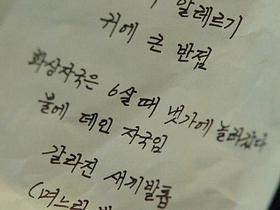 알레르기
귀에 큰 반점
화상자국은 6살때 냇가에 놀러갔다
불에 데인 자국임
갈라진 새끼발톱
(며느리